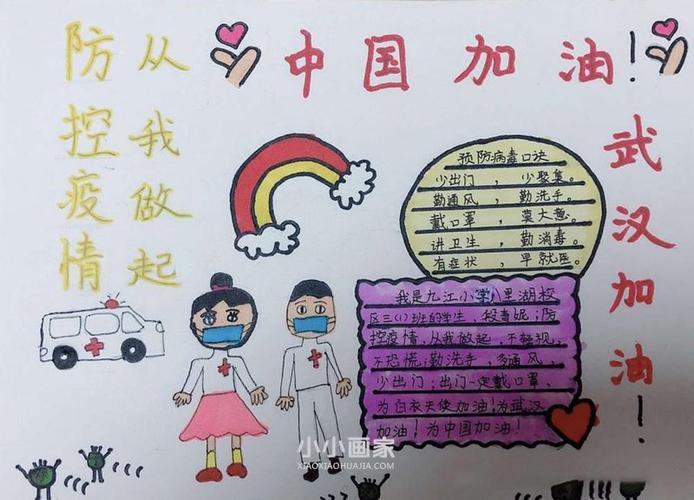 防控疫情
从我做起
中国加油!
武汉加油!
预防病毒口诀
少出门，少聚集。
勤通风，勤洗手。
戴口罩，莫大意。
讲卫生，勤消毒。
有症状，早就医。
我是九江小学八里湖校
区三(1)班的学生，段青妮；防
控疫情，从我做起，不轻视，
不恐慌；勤洗手，多通风
少出门；出门一定戴口罩，
为白衣天使加油!为武汉
加油!为中国加油!
小小画家
XIAOXIAOHUAJIA.COM